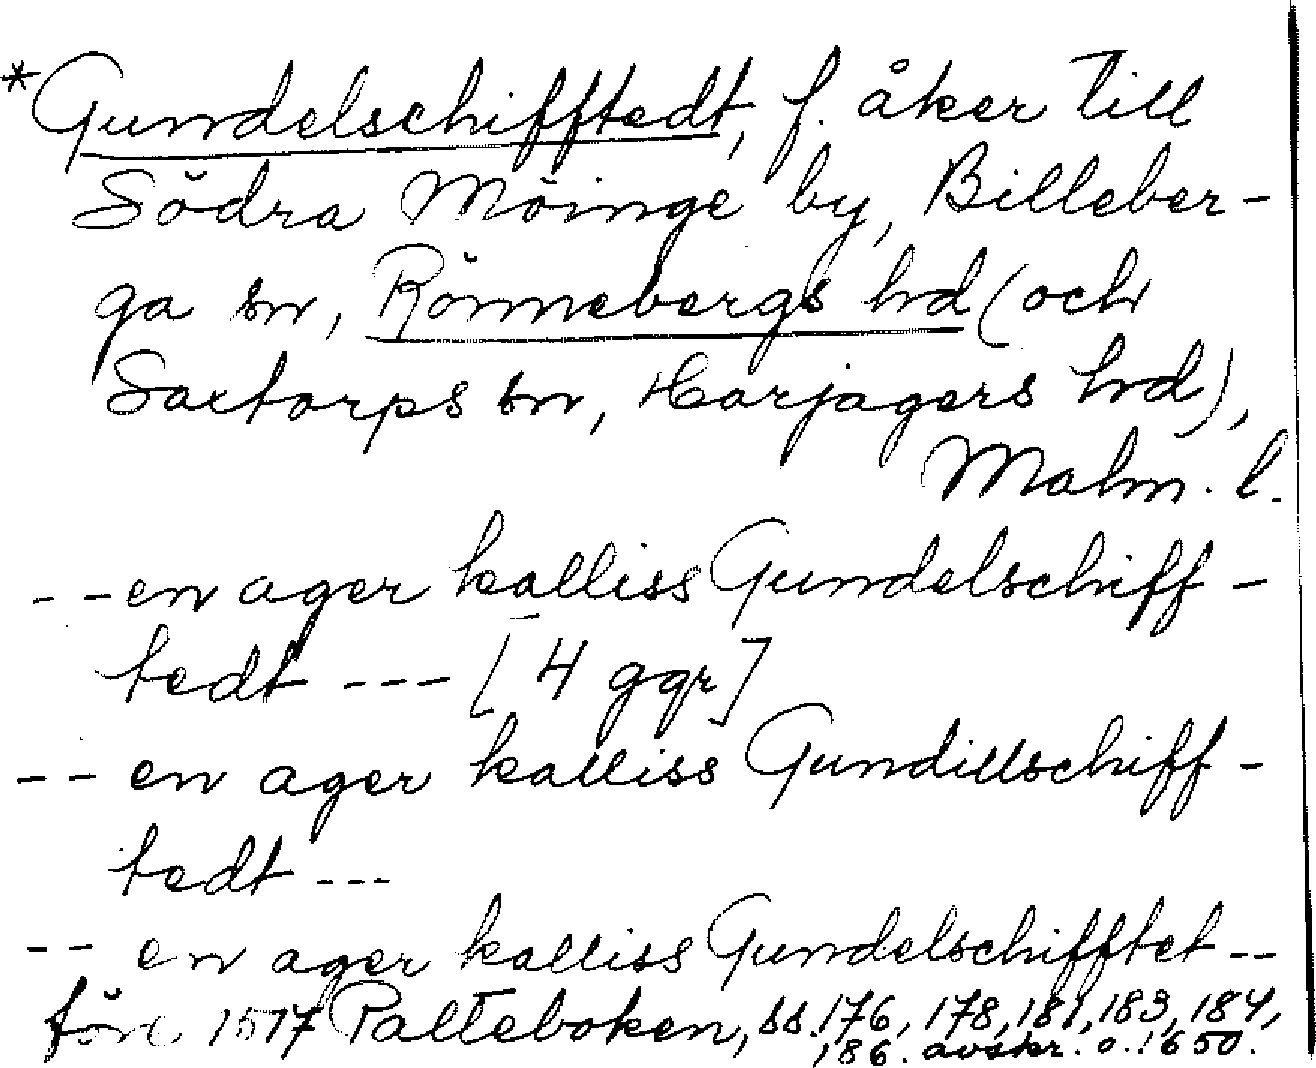 *Gundelschifftedt, f. åker till
Södra Möinge by, Billeber-
ga sn, Rönnebergs hd (och
Saxtorps sn, Harjagers hd),
Malm. l.
-- en ager kalliss Gundelschiff-
tedt --- [4 ggr]
-- en ager kalliss Gundillschiff-
tedt ---
-- en ager kalliss Gundelschifftet --
före 1517 Palteboken, ss. 176, 178, 181, 183, 184,
186. avskr. o. 1650.